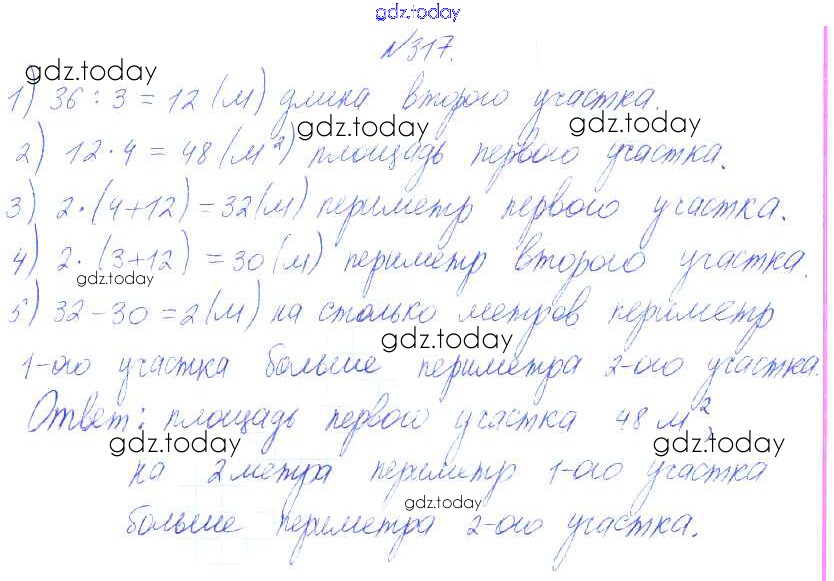 gdz.today
№317.
gdz.today
1) 36 : 3 = 12 (м) длина второго участка.
gdz.today gdz.today
2) 12 · 4 = 48 (м²) площадь первого участка.
3) 2 · (4+12) = 32 (м) периметр первого участка.
4) 2 · (3+12) = 30 (м) периметр второго участка.
gdz.today
5) 32 - 30 = 2 (м) на столько метров периметр
gdz.today
1-ого участка больше периметра 2-ого участка.
Ответ: площадь первого участка 48 м²,
gdz.today gdz.today
на 2 метра периметр 1-ого участка
gdz.today
больше периметра 2-ого участка.